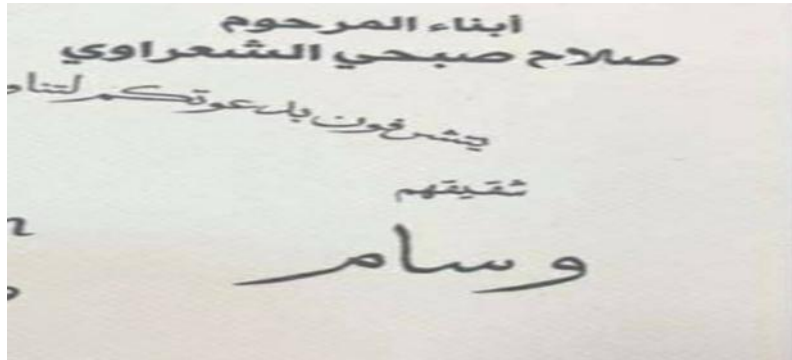 أبناء المرحوم
صلاح صبحي الشعراوي
يتشرفون بدعوتكم
شقيقهم
وسام